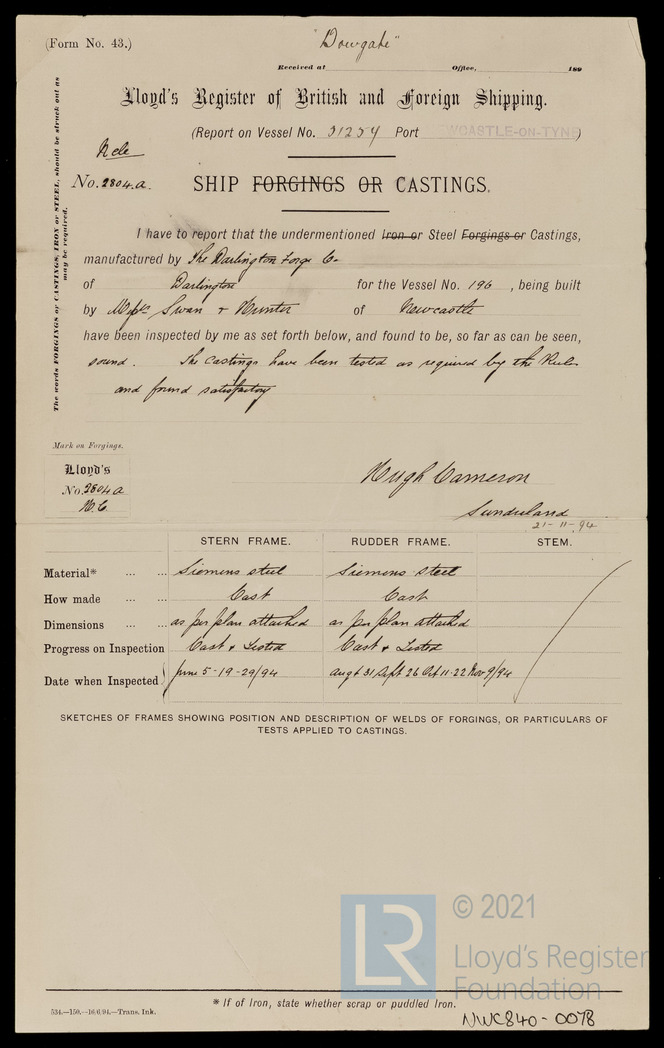 (Form No. 43.)
"Dowgate"
Received at Office, 189
Lloyd's Register of British and Foreign Shipping.
(Report on Vessel No. 31254 Port NEWCASTLE-ON-TYNE)
Ncle
No. 2804.a. SHIP FORGINGS OR CASTINGS.
The words FORGINGS or CASTINGS, IRON or STEEL, should be struck out as
may be required.
I have to report that the undermentioned Iron or Steel Forgings or Castings,
manufactured by The Darlington Forge Co
of Darlington for the Vessel No. 196 , being built
by Messrs Swan & Hunter of Newcastle
have been inspected by me as set forth below, and found to be, so far as can be seen,
sound. The castings have been tested as required by the Rules
and found satisfactory
Mark on Forgings.
Lloyd's
No. 2804a
H.C.
Hugh Cameron
Sunderland
21-11-94
STERN FRAME. RUDDER FRAME. STEM.
Material* ... ... Siemens steel Siemens steel
How made ... Cast Cast
Dimensions ... ... as per plan attached as per plan attached
Progress on Inspection Cast & Tested Cast & Tested
Date when Inspected June 5-19-29/94 Augt 31 Sept 26 Oct 11-22 Nov 9/94
SKETCHES OF FRAMES SHOWING POSITION AND DESCRIPTION OF WELDS OF FORGINGS, OR PARTICULARS OF
TESTS APPLIED TO CASTINGS.
© 2021
LR
Lloyd's Register
Foundation
* If of Iron, state whether scrap or puddled Iron.
534.—150.—16/6/94.—Trans. Ink.
NWC840-0078